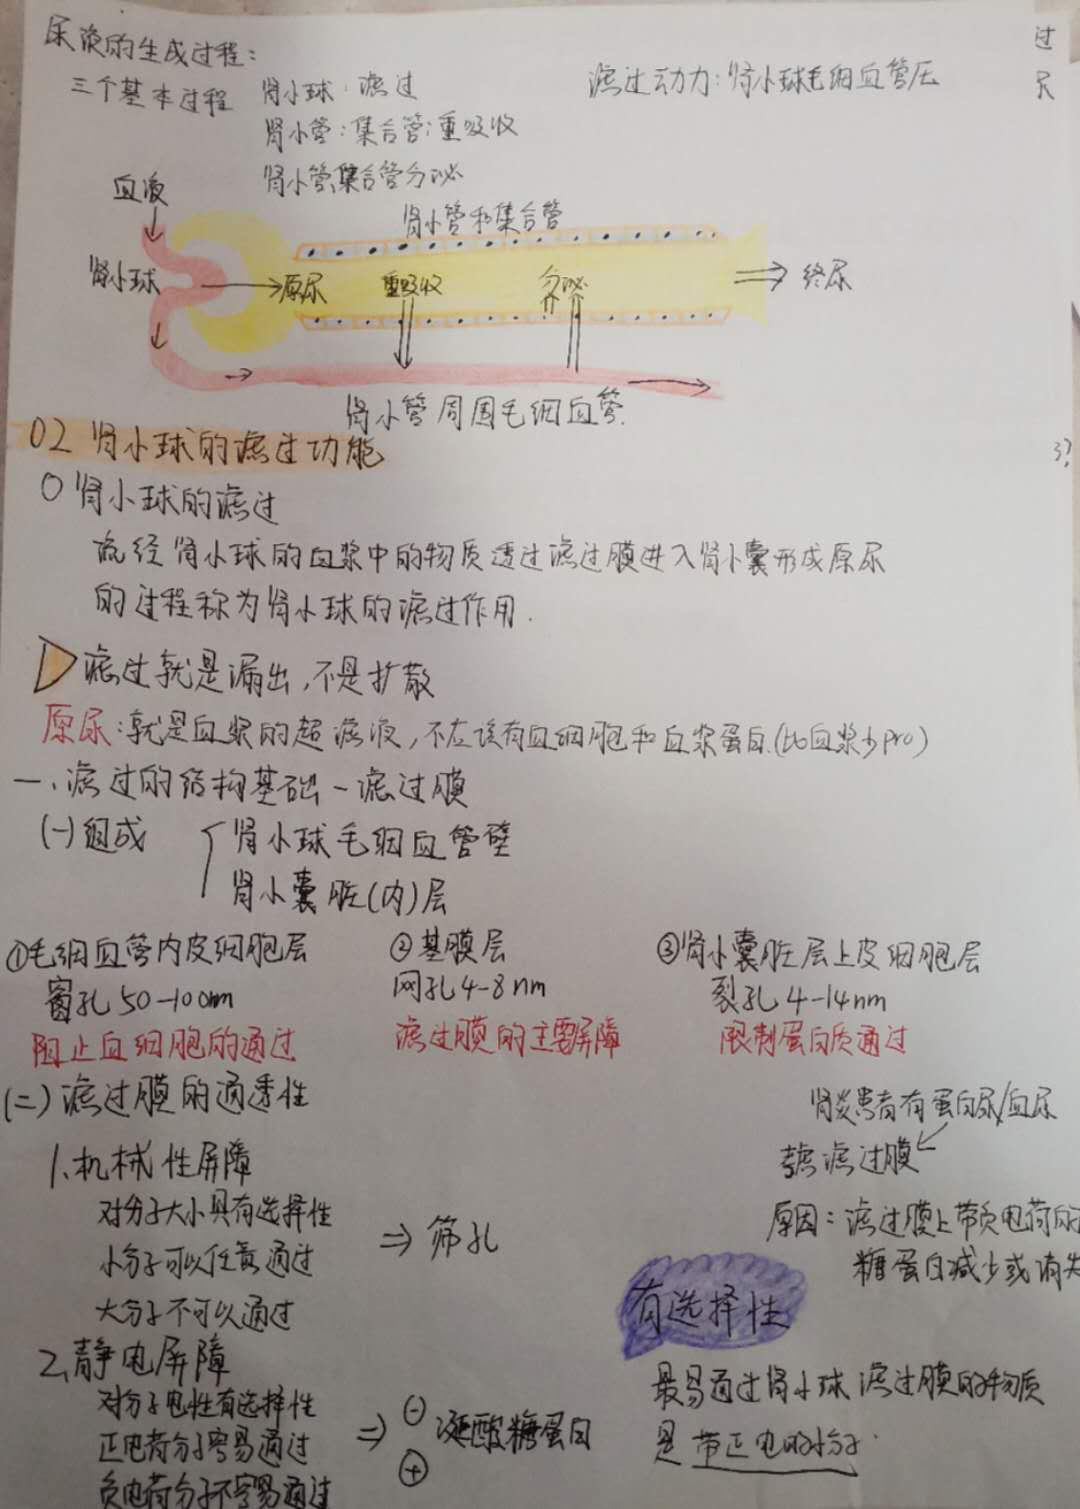 尿液的生成过程：
三个基本过程 肾小球：滤过
滤过动力：肾小球毛细血管压
肾小管：集合管：重吸收
肾小管、集合管分泌
过
尿
血液
肾小管和集合管
肾小球
原尿
重吸收
分泌
终尿
肾小管周围毛细血管.
02 肾小球的滤过功能
3?
肾小球的滤过
流经肾小球的血浆中的物质透过滤过膜进入肾小囊形成原尿
的过程称为肾小球的滤过作用.
滤过就是漏出,不是扩散
原尿：就是血浆的超滤液,不应该有血细胞和血浆蛋白.(比血浆少pro)
一、滤过的结构基础-滤过膜
(一)组成
肾小球毛细血管壁
肾小囊脏(内)层
①毛细血管内皮细胞层 ②基膜层 ③肾小囊脏层上皮细胞层
窗孔50-100nm 网孔4-8nm 裂孔4-14nm
阻止血细胞的通过 滤过膜的主要屏障 限制蛋白质通过
(二)滤过膜的通透性
肾炎患者有蛋白尿/血尿
1.机械性屏障
滤过膜
对分子大小具有选择性
原因：滤过膜上带负电荷的
小分子可以任意通过 ⇒ 筛孔
糖蛋白减少或消失
大分子不可以通过
有选择性
2.静电屏障
对分子电性有选择性
最易通过肾小球滤过膜的物质
正电荷分子容易通过 ⇒ ⊖ ⊕ 涎酸糖蛋白
是带正电的小分子.
负电荷分子不容易通过